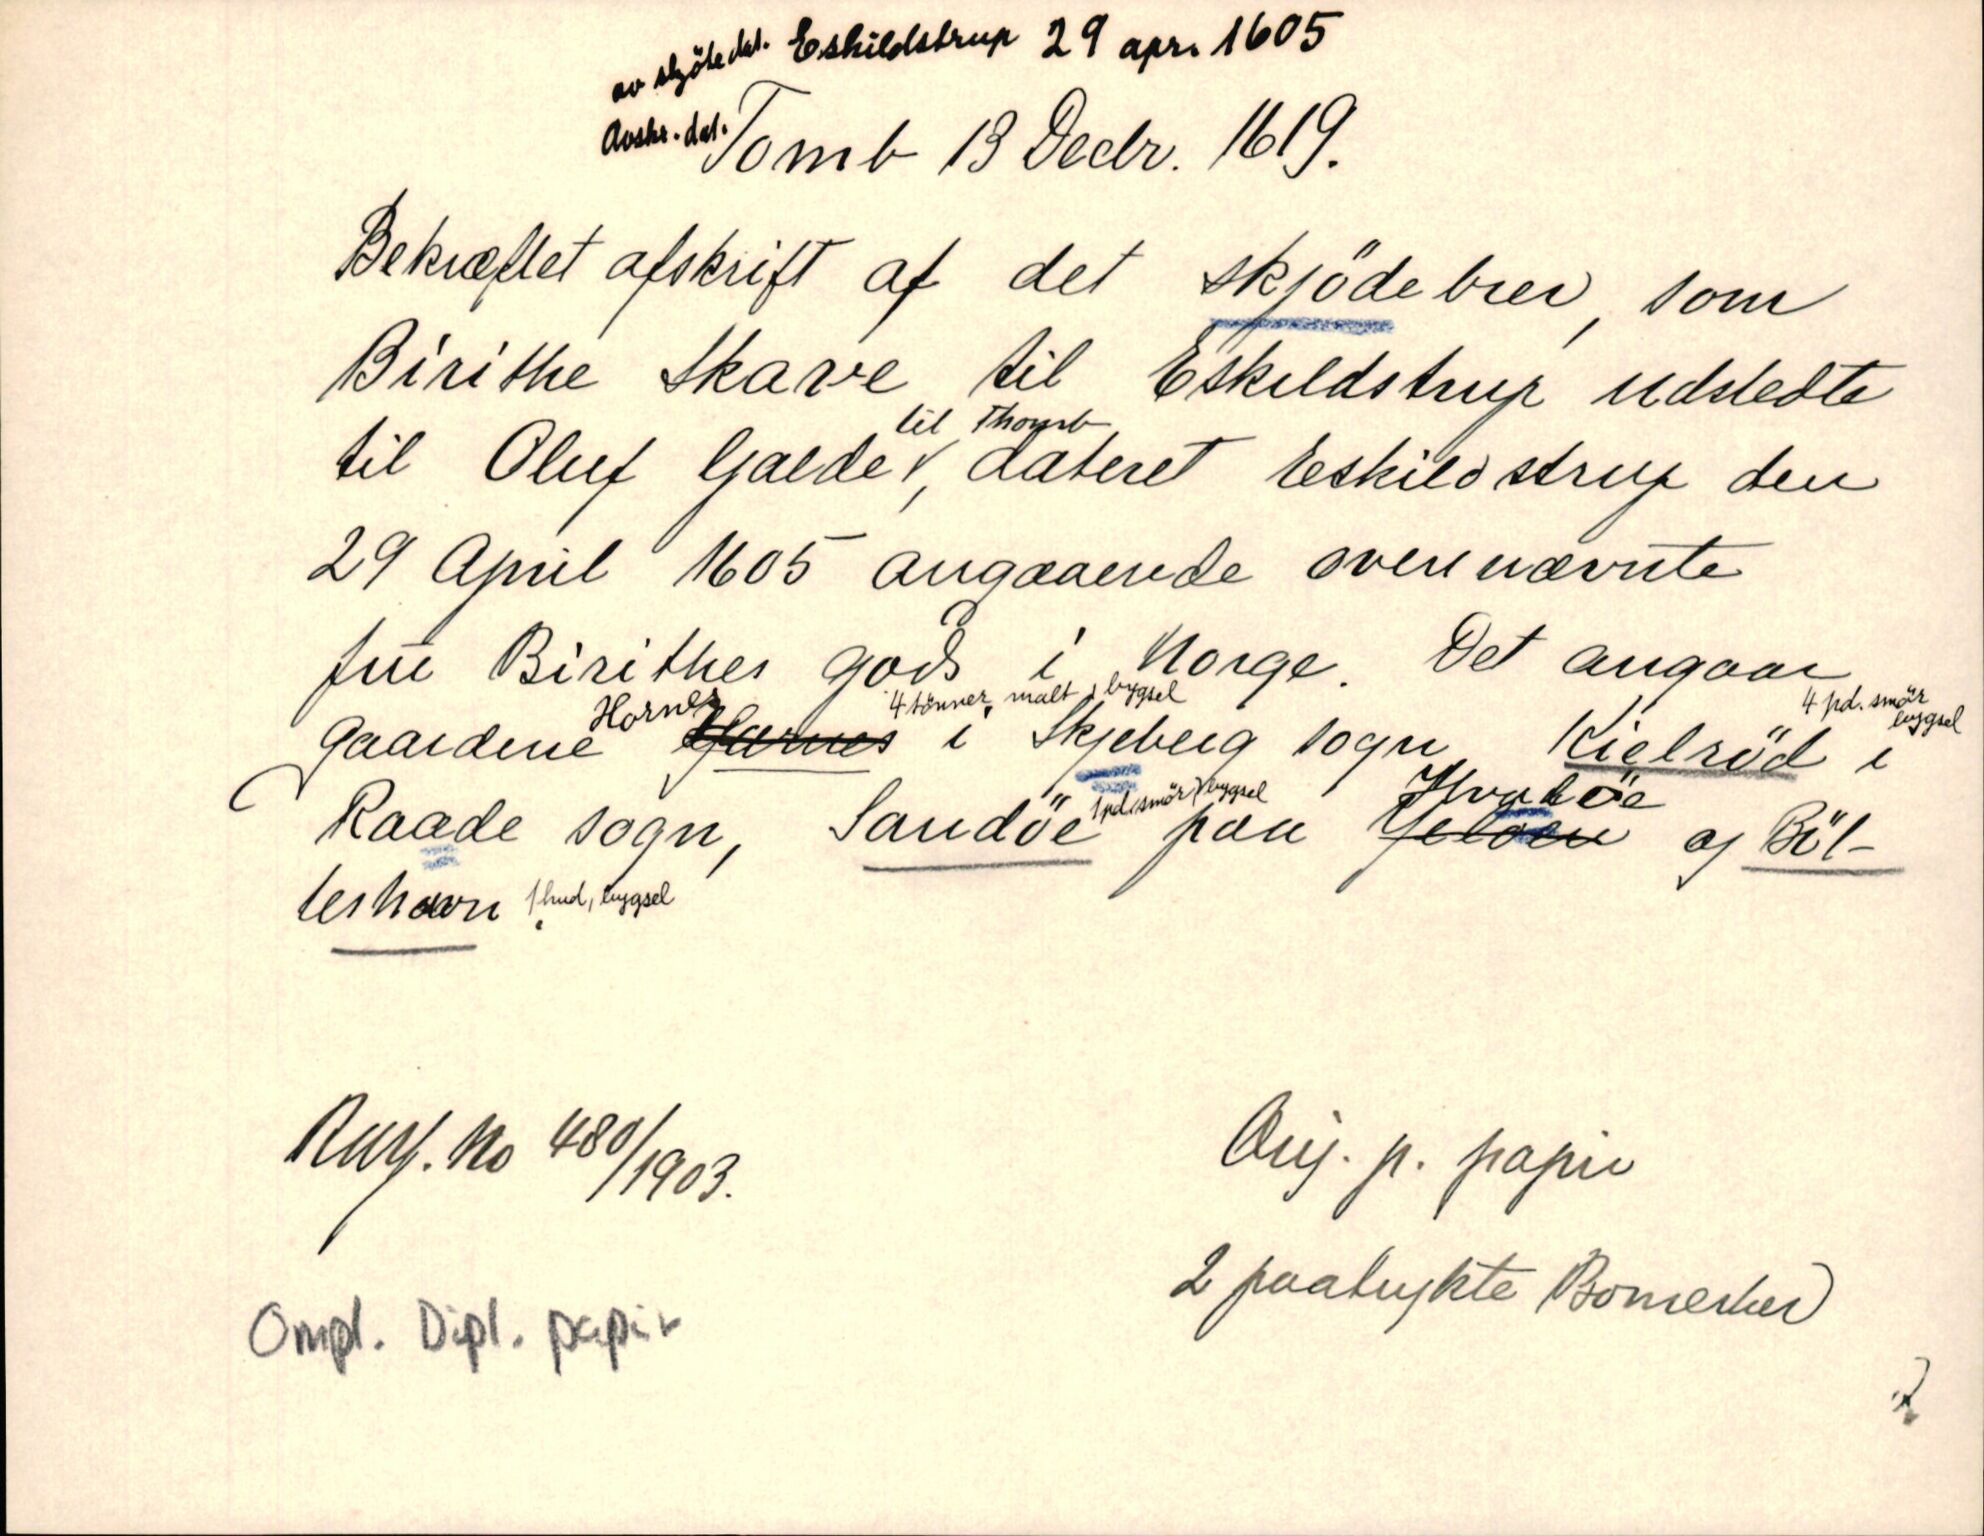 av skjöte dat. Eskildstrup 29 apr. 1605
Avskr. dat. Tomb 13 Decbr. 1619.
Bekræftet afskrift af det skjödebrev, som
Birithe Skave til Eskildstrup udstedte
til Thomb
til Oluf Galde, dateret Eskildstrup den
29 April 1605 angaaende ovennævnte
fru Birithes gods i Norge. Det angaar
Hornes 4 tönner malt, bygsel 4 pd. smör bygsel
gaardene Hornes i Skjeberg sogn Kielröd i
1 pd. smör, bygsel Hvalöe
Raade sogn, Sandöe paa Jeloen og Böl-
leshavn 1 hud, bygsel
No 480/1903.
Orig. p. papir
2 paatrykte Bomerker
Ompl. Dipl. papir